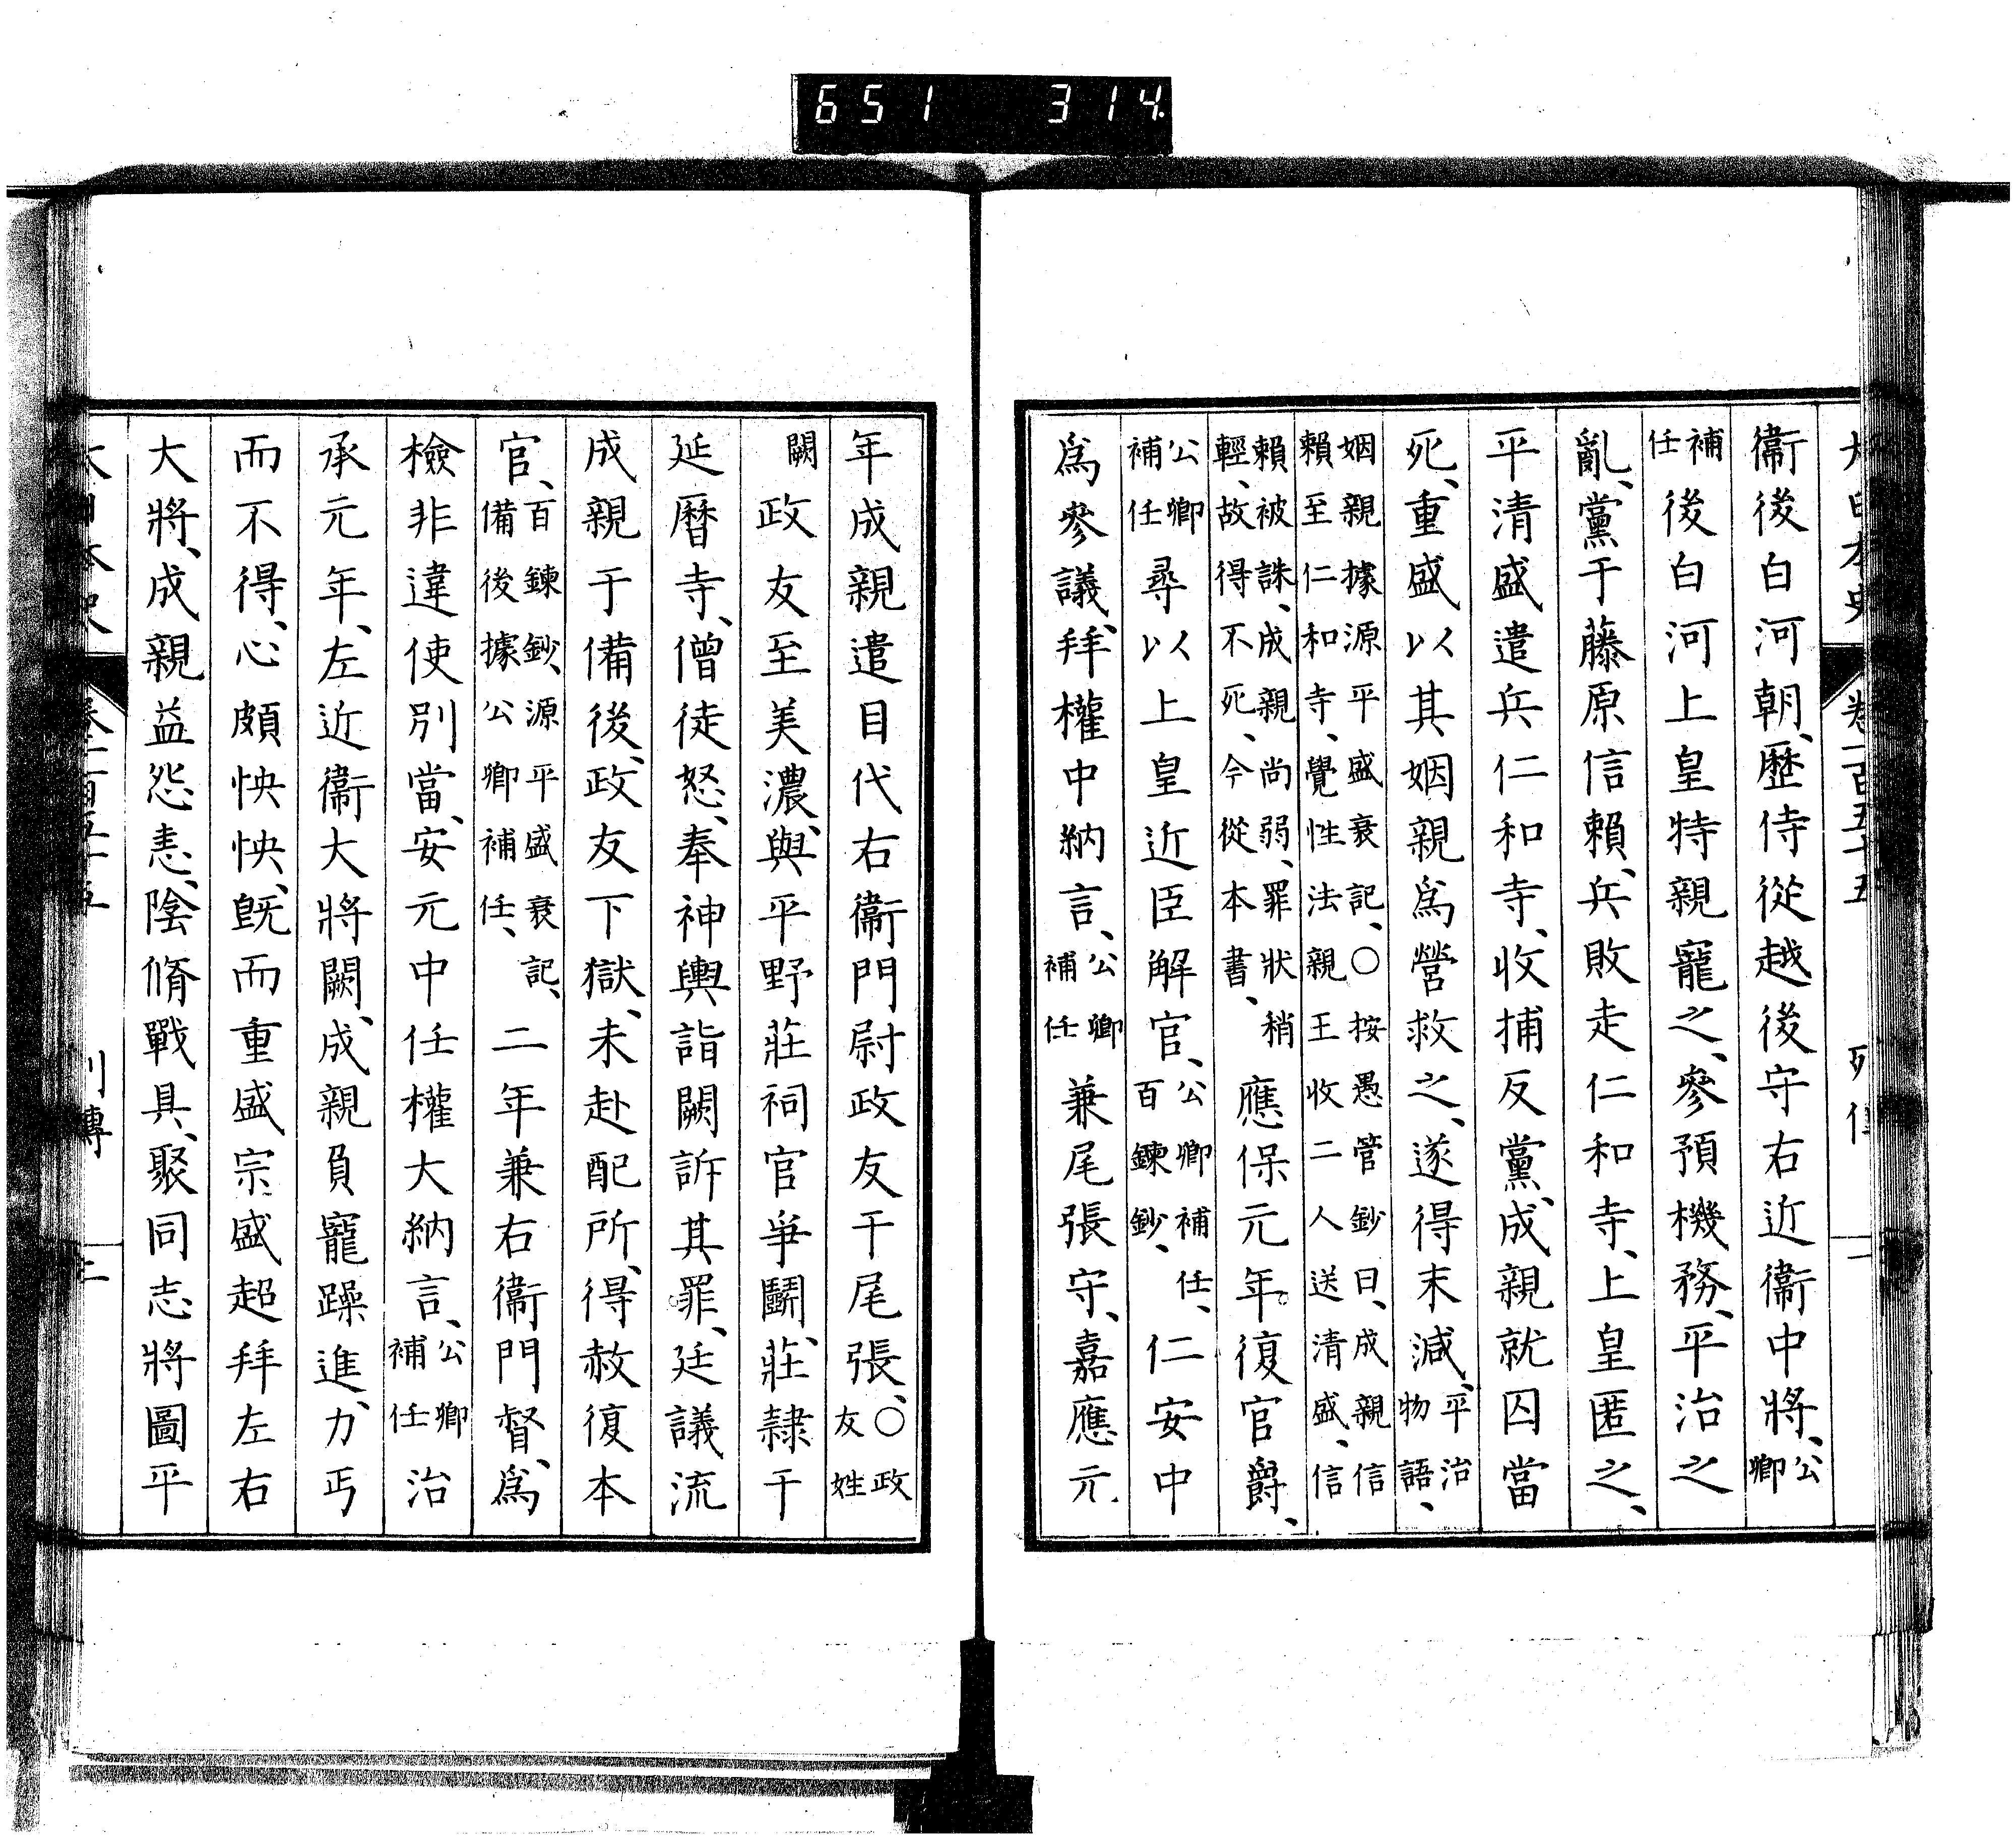 651 314.
大日本史 卷一百五十五 列傳 二
衞後白河朝、歷侍從越後守右近衞中將、公卿
補任後白河上皇特親寵之、參預機務、平治之
亂、黨于藤原信賴、兵敗走仁和寺、上皇匿之、
平淸盛遣兵仁和寺、收捕反黨、成親就囚當
死、重盛以其姻親爲營救之、遂得末減、平治物語、
姻親據源平盛衰記、○按愚管鈔曰、成親信
賴至仁和寺、覺性法親王收二人送淸盛、信
賴被誅、成親尚弱、罪狀稍
輕、故得不死、今從本書、應保元年復官爵、
公卿補任尋以上皇近臣解官、公卿補任、百鍊鈔、仁安中
爲參議、拜權中納言、公卿補任兼尾張守、嘉應元
年成親遣目代右衞門尉政友于尾張、○政友姓
闕政友至美濃、與平野莊祠官爭鬭、莊隷于
延曆寺、僧徒怒、奉神輿詣闕訴其罪、廷議流
成親于備後、政友下獄、未赴配所、得赦復本
官、百鍊鈔、源平盛衰記、備後據公卿補任、二年兼右衞門督、爲
檢非違使別當、安元中任權大納言、公卿補任治
承元年、左近衞大將闕、成親負寵躁進、力丐
而不得、心頗怏怏、旣而重盛宗盛超拜左右
大將、成親益怨恚、陰脩戰具、聚同志將圖平
大日本史 卷一百五十五 列傳 三